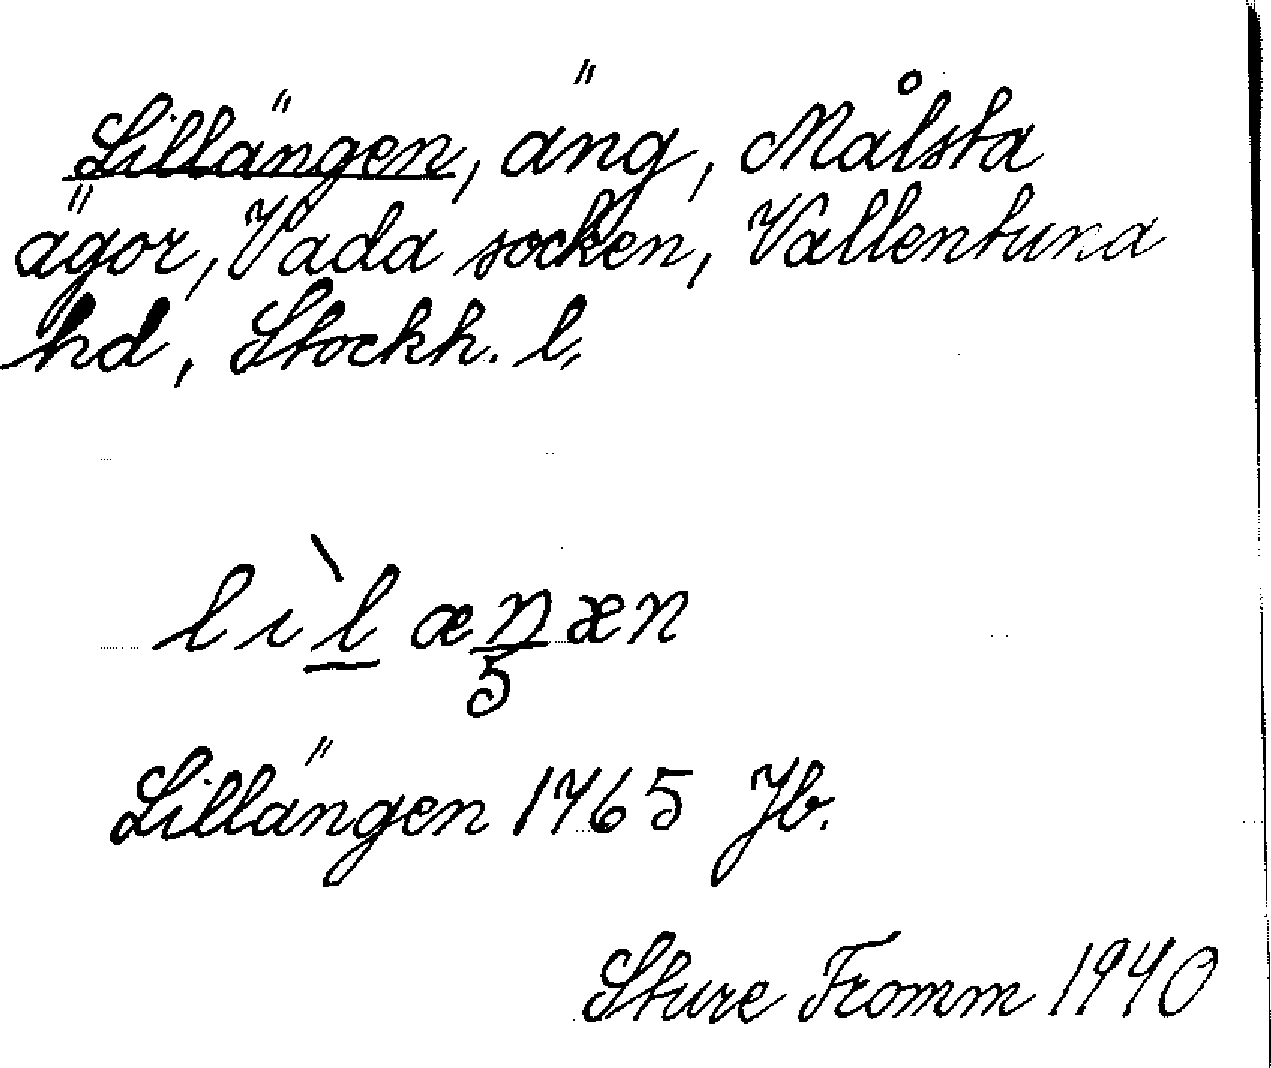 Lillängen, äng, Målsta
ägor, Vada socken, Vallentuna
hd, Stockh. l.
lìlænæn
5
Lillängen 1765 Jb.
Sture Fromm 1940